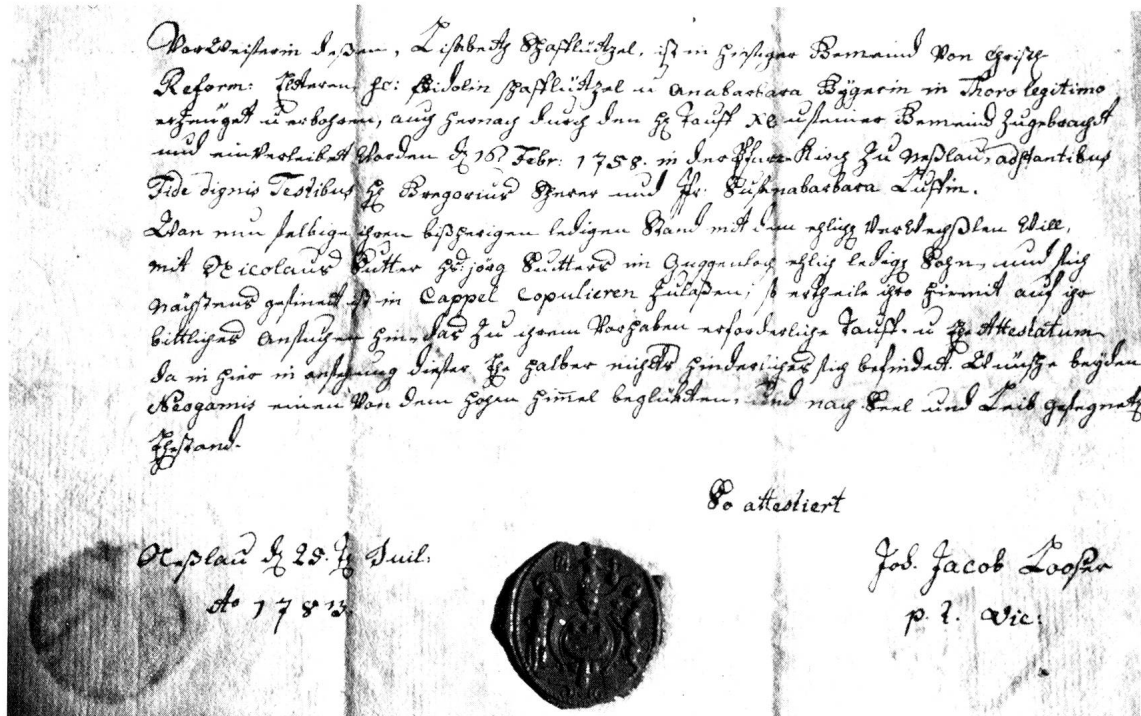 Vorweiserin deßen, Lisabeth Schafflützel, ist in hiesiger Gemeind von christl
Reform: Elteren, H: Fridolin Schafflützel u Anabarbara Gygerin in Thoro legitimo
erzeuget u erbohren, auch hernach durch den H Tauff Xo u seiner Gemeind zugebracht
und einverleibet worden d 16 Febr: 1758. in der Pfarr-Kirch zu Neßlau, adstantibus
Fide dignis Testibus H Gregorius Scherer und Fr. Susanabarbara
Wan nun selbige ihren bißherigen ledigen Stand mit dem ehlich verwechßlen will,
mit Nicolaus Sutter Hs: Jörg Sutters im Guggenloch ehlich ledig Sohn, und sich
nächstens gesinnet ist in Cappel Copulieren zulaßen; so ertheile ihro hiermit auf ihr
bittliches Ansuchen hin, das zu ihrem Vorhaben erforderliche Tauff- u Attestatum
da in hier in ansehung dießer Ehe halber nichts hinderliches sich befindet. Wünsche beyden
Neogamis einen von dem hohen Himmel beglükten, und nach Seel und Leib gesegnet
Ehestand.
So attestiert
Neßlau d 25. Juil:
Ao 1783.
Joh. Jacob Looser
p. t. Vic: